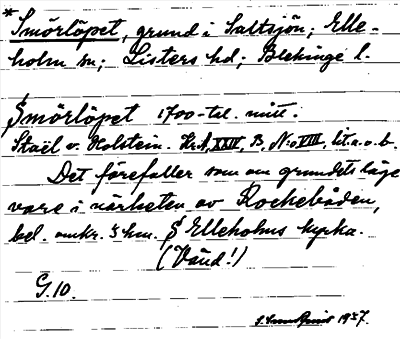 * Smörlöpet, grund i Saltsjön; Elle-
holm sn; Listers hd; Blekinge l.
Smörlöpet 1700-tal. mitt.
Staël v. Holstein. Kr.A, XXIV, B, N:o VIII, lit. a. o. b.
Det förefaller som om grundets läge
vore i närheten av Rockebåden,
bel. omkr. 5 km. S Elleholms kyrka.
(Vänd!)
G.10.
1937.